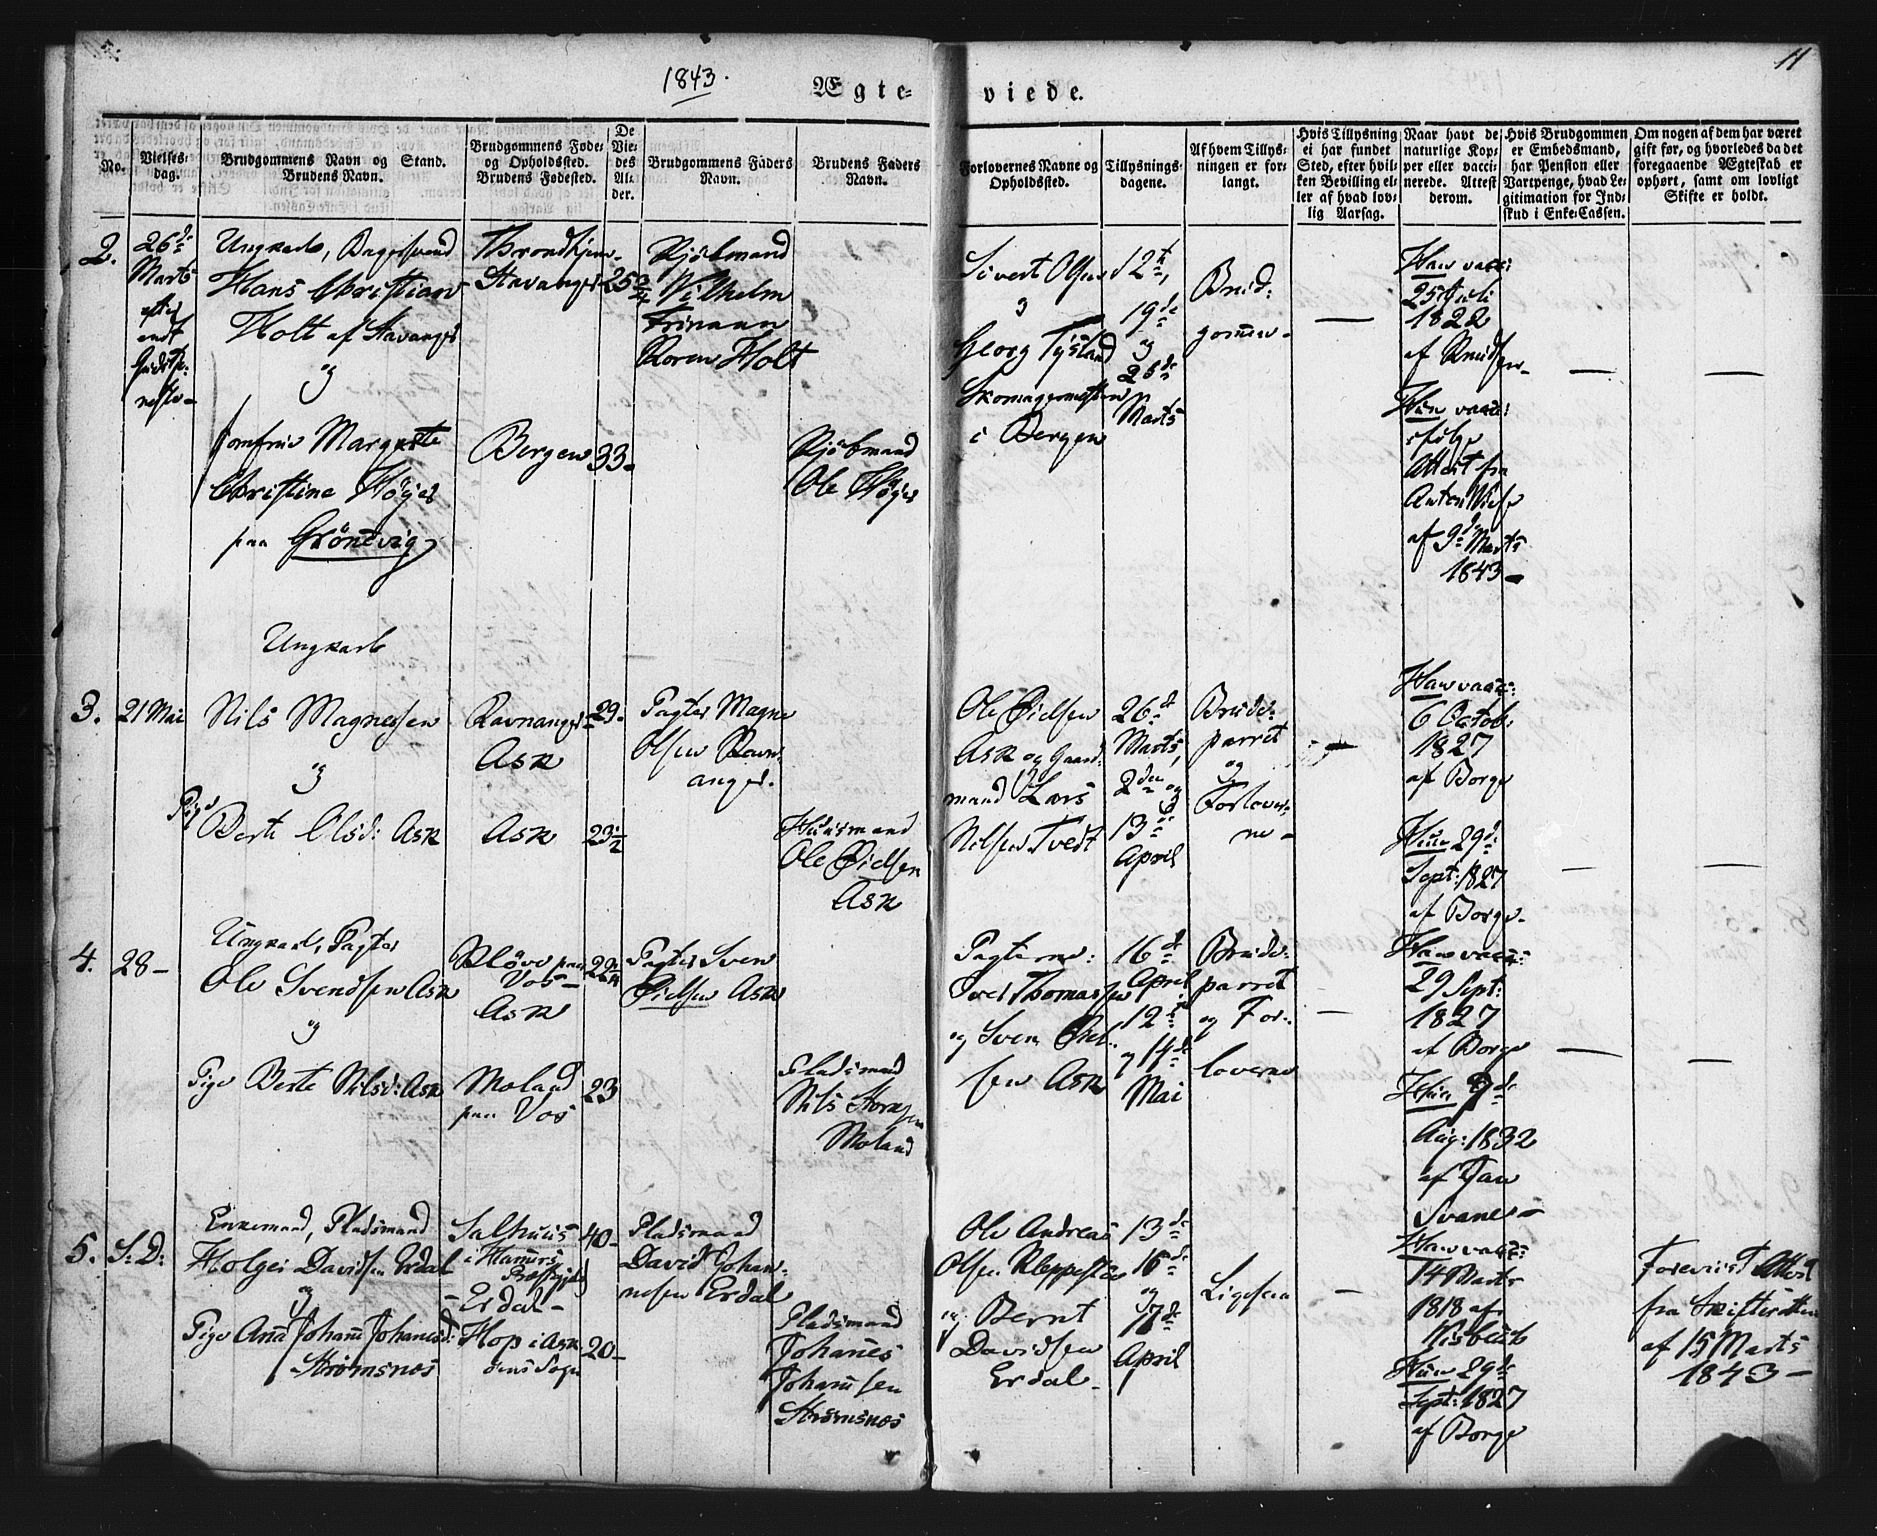 1843.
11
Ægteviede.
No.
Vielses-
dag.
Brudgommens Navn og Stand.
Brudens Navn.
Brudgommens Føde-
og Opholdssted.
Brudens Fødested.
De
Vie-
des
Al-
der.
Brudgommens Faders
Navn.
Brudens Faders
Navn.
Forlovernes Navne og
Opholdssted.
Tillysnings-
dagene.
Af hvem Tillys-
ningen er for-
langt.
Hvis Tillysning
ei har fundet
Sted, efter hvil-
ken Bevilling el-
ler af hvad lov-
lig Aarsag.
Naar havt de
naturlige Kop-
per eller vacci-
nerede. Attest
derom.
Hvis Brudgommen
er Embedsmand,
har Pension eller
Vartpenge, hvad Le-
gitimation for Ind-
skud i Enke-Cassen.
Om nogen af dem har været
gift før, og hvorledes da det
foregaaende Ægteskab er
ophørt, samt om lovligt
Skifte er holdt.
2.
26de
Marts
efter
endt
Gudstje-
neste
Ungkarl,
Hans Christian
Holt af Stavanger
og
Jomfrue Margrete
Christine Höyer
paa Grönevig
Throndhjem
Stavanger
Bergen
25 3/4
33
Kjöbmand
Vilhelm
Frimann
Koren Holt
Kjöbmand
Ole Höyer
Sivert Olsen
og
Georg Tysland
Skomagermestere
i Bergen
12te,
19de
og
26de
Marts
Brud-
gommen
Han vacc:
25 Juli
1822
af Knudsen
Hun vacc:
ifölge
Attest fra
Anton Wiese
af 9de Marts
1843
Ungkarl
3.
21 Mai
Nils Magnessen
og
Pige
Berte Olsd: Ask
Ravnanger
Ask
Ask
29
23 1/2
Pagter Magne
Olsen Ravn-
anger.
Huusmand
Ole Öielsen
Ask
Ole Öielsen
Ask og Gaard-
mand Lars
Nilsen Tvedt
26de
Marts,
2den og
13de
April
Brude-
parret
og
Forlover-
ne
Han vacc:
6 Octob:
1827
af Borge
Hun 29de
Sept: 1827
af Borge
4.
28
Ungkarl, Pagter
Ole Svendsen Ask
og
Pige Berte Nilsd: Ask
Klöve paa
Vos
Ask
Moland
paa Vos
23
Pagter Sven
Öielsen Ask
Pladsmand
Nils
Moland
Pagterne:
Thomassen
og Sven
sen Ask
16de
April
12te
og 14de
Mai
Brude-
parret
og For-
loverne
Han vacc:
29 Sept:
1827
af Borge
Hun 9de
Aug: 1832
af Jan
Svane
5.
S: D:
Enkemand, Pladsmand
Holger Davidsen Erdal
og
Pige Ana Johane Johanesd:
Strömsnes
Salhuus
i Hamers
Præstegjeld
Erdal
Hop i Ask-
öens Sogn
40
20
Pladsmand
David Johan-
nesen Erdal
Pladsmand
Johanes
Johannesen
Strömsnes
Ole Andreas
Olsen Kleppestöe
og Bernt
Davidsen
Erdal
13de
16de
og
17de
April
Ligesaa
Han vacc:
14 Marts
1818 af
Nisbeth
Hun 29de
Sept: 1827
af Borge
Foreviist Attest
fra Skifteretten
af 15 Marts
1843